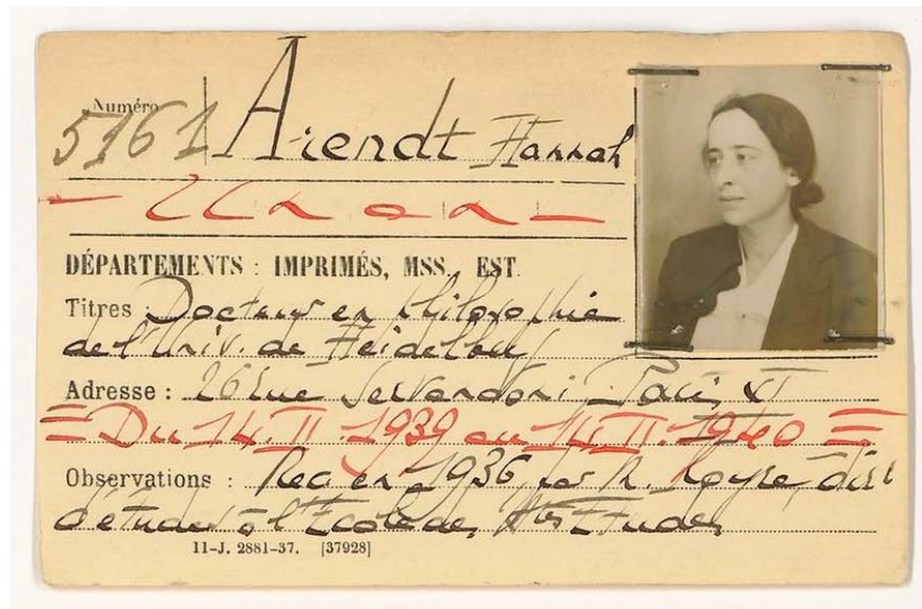 Numéro
5161 Arendt Hannah
DÉPARTEMENTS : IMPRIMÉS, MSS. EST.
Titres : Docteur en philosophie
de l'Univ. de Heidelberg
Adresse : 26 rue Servandoni Paris
= Du 14. II. 1939 au 14 II. 1940 =
Observations : Rec en 1936 par M. Koyré, dir
d'études à l'Ecole des Htes Etudes
11-J. 2881-37. [37928]